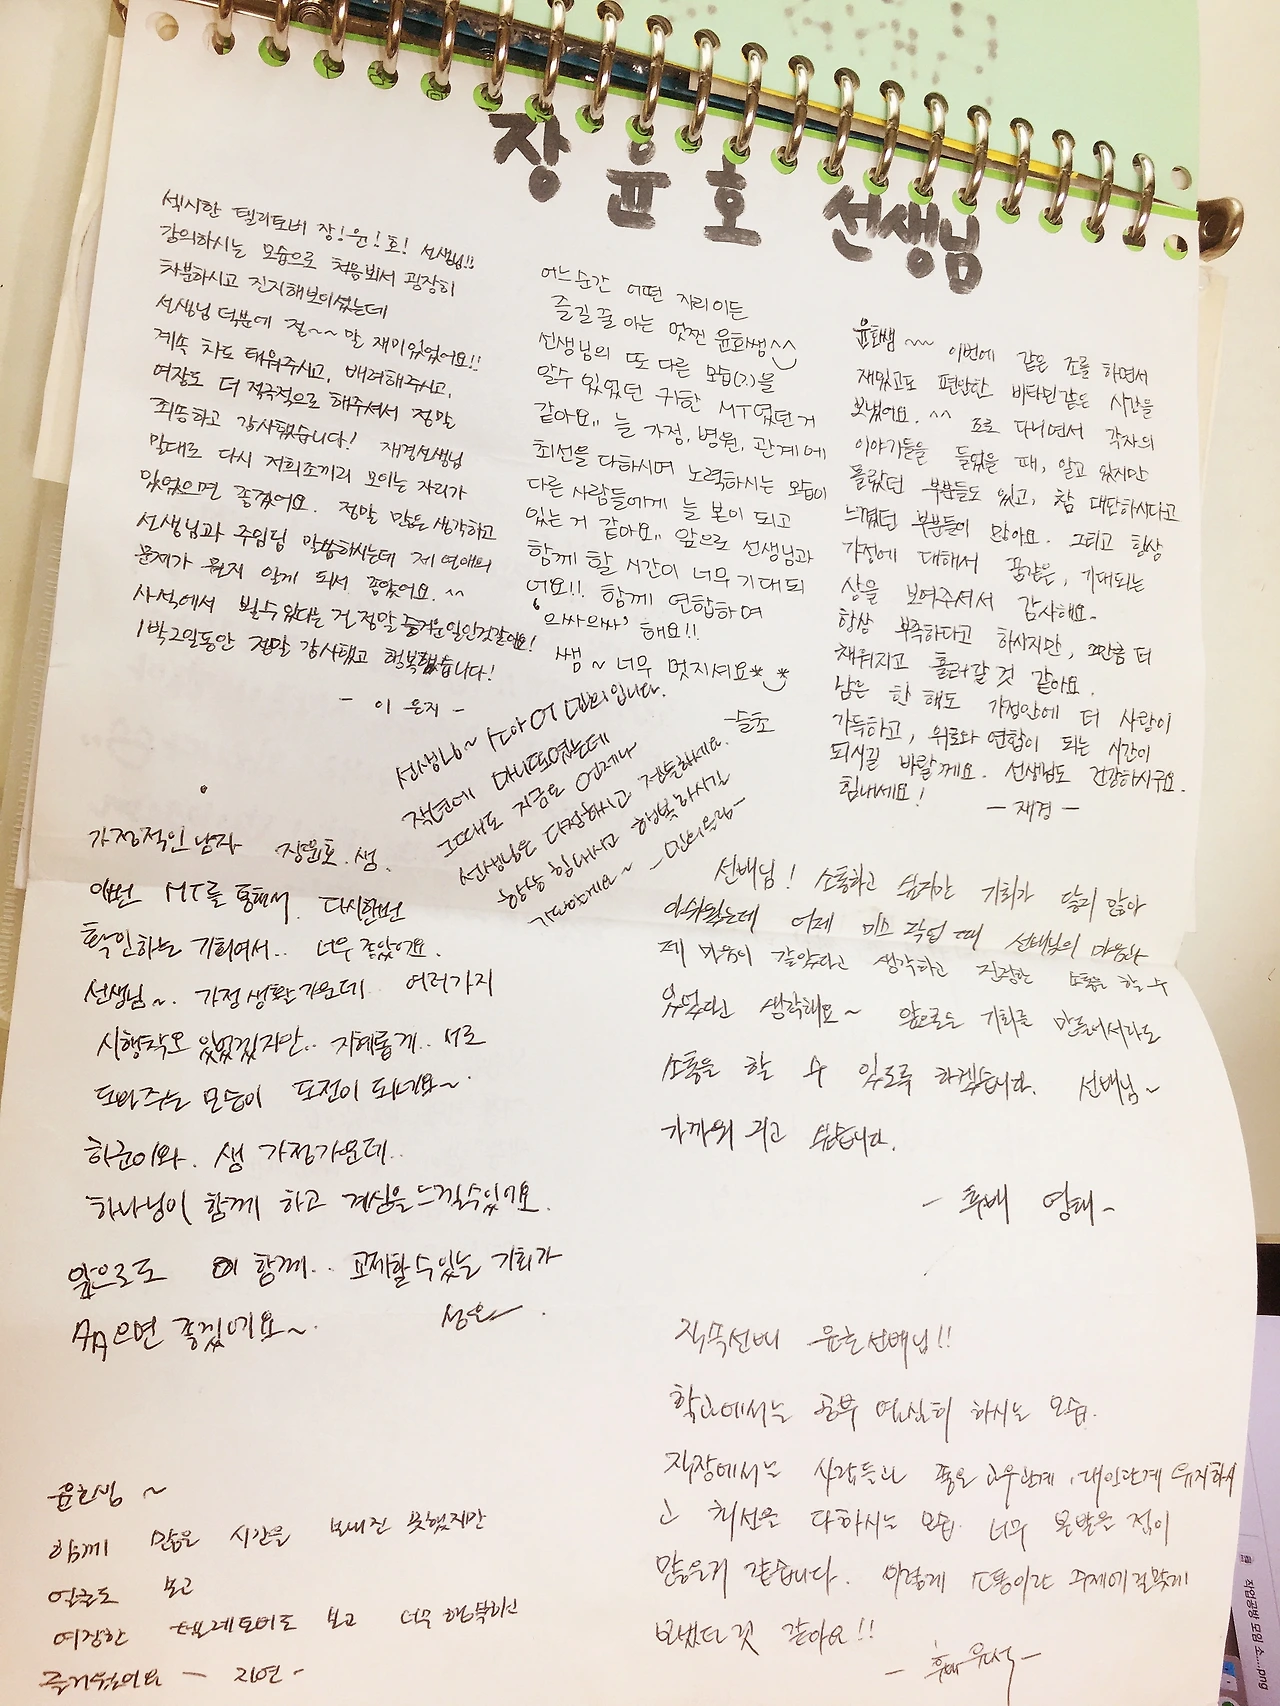 장윤호 선생님
섹시한 텔리토비 장!윤!호! 선생님!!
강의하시는 모습으로 처음뵈서 굉장히
차분하시고 진지해보이셨는데
선생님 덕분에 절~~말 재미있었어요!!
계속 차도 태워주시고, 배려해주시고,
여장도 더 적극적으로 해주셔서 정말
죄송하고 감사했습니다! 재경선생님
말대로 다시 저희조끼리 모이는 자리가
있었으면 좋겠어요. 정말 많은 생각하고
선생님과 주임님 말씀하시는데 제 연애의
문제가 뭔지 알게 되서 좋았어요. ^^
사석에서 뵐수 있다는 건 정말 즐거운일인것같아요!
1박2일동안 정말 감사했고 행복했습니다!
- 이은지 -
어느순간 어떤 자리이든
즐길 줄 아는 멋찐 윤호쌤^^
선생님의 또 다른 모습(?)을
알수 있었던 귀한 MT였던거
같아요,, 늘 가정, 병원, 관계에
최선을 다하시며 노력하시는 모습이
다른 사람들에게 늘 본이 되고
있는 거 같아요,, 앞으로 선생님과
함께 할 시간이 너무 기대되
어요!! 함께 연합하며
'으싸으싸' 해요!!
쌤~ 너무 멋지셔요*
-슬초
윤호쌤~~~ 이번에 같은 조를 하면서
재밌고도 편안한 비타민같은 시간을
보냈어요. ^^ 조로 다니면서 각자의
이야기들을 들었을 때, 알고 있지만
몰랐던 부분들도 있고, 참 대단하시다고
느꼈던 부분들이 많아요. 그리고 항상
가정에 대해서 꿈같은, 기대되는
상을 보여주셔서 감사해요.
항상 부족하다고 하시지만, 그만큼 더
채워지고 흘러갈 것 같아요.
남은 한 해도 가정안에 더 사랑이
가득하고, 위로와 연합이 되는 시간이
되시길 바랄께요. 선생님도 건강하시구요.
힘내세요!
- 재경 -
선생님~ 소아OT 입니다.
작년에
그때도 지금도 언제나
선생님은 다정하시고 젠틀하세요.
항상 힘내시고 행복하시길
기도할게요~
가정적인 남자 장윤호 쌤.
이번 MT를 통해서 다시한번
확인하는 기회여서.. 너무 좋았어요.
선생님~. 가정생활 가운데 여러가지
시행착오 있었겠지만.. 지혜롭게.. 서로
도와주는 모습이 도전이 되네요~.
하준이와. 쌤 가정가운데..
하나님이 함께 하고 계심을 느낄수있어요.
앞으로도 함께.. 교제할수있는 기회가
많으면 좋겠네요~. 성은
선배님! 소통하고 싶지만 기회가 닿지 않아
아쉬웠는데 어제 미스 작업 때 선배님의 마음과
제 마음이 같았다고 생각하고 진정한 소통을 할 수
있었다고 생각해요~ 앞으로도 기회를 만들어서라도
소통을 할 수 있도록 하겠습니다. 선배님~
가까워 지고 싶습니다.
- 후배 영태 -
직속선배 윤호선배님!!
학교에서는 공부 열심히 하시는 모습.
직장에서는 사람들과 좋은 교우관계, 대인관계 유지하시
고 최선을 다하시는 모습. 너무 본받을 점이
많은거 같습니다. 이렇게 소통이란 주제에 걸맞게
보냈던 것 같아요!!
- 후배 유석 -
윤호쌤~
함께 많은 시간을 보내진 못했지만
얼굴도 보고
여장한 텔레토비도 보고 너무 행복하고
즐거웠어요 - 지연 -